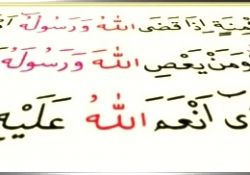 مِنَةٍ إِذَا قَضَى اللهُ وَرَسُولُهُ
وَمَنْ يَعْصِ اللهَ وَرَسُولَهُ
أَنْعَمَ اللهُ عَلَيْهِ